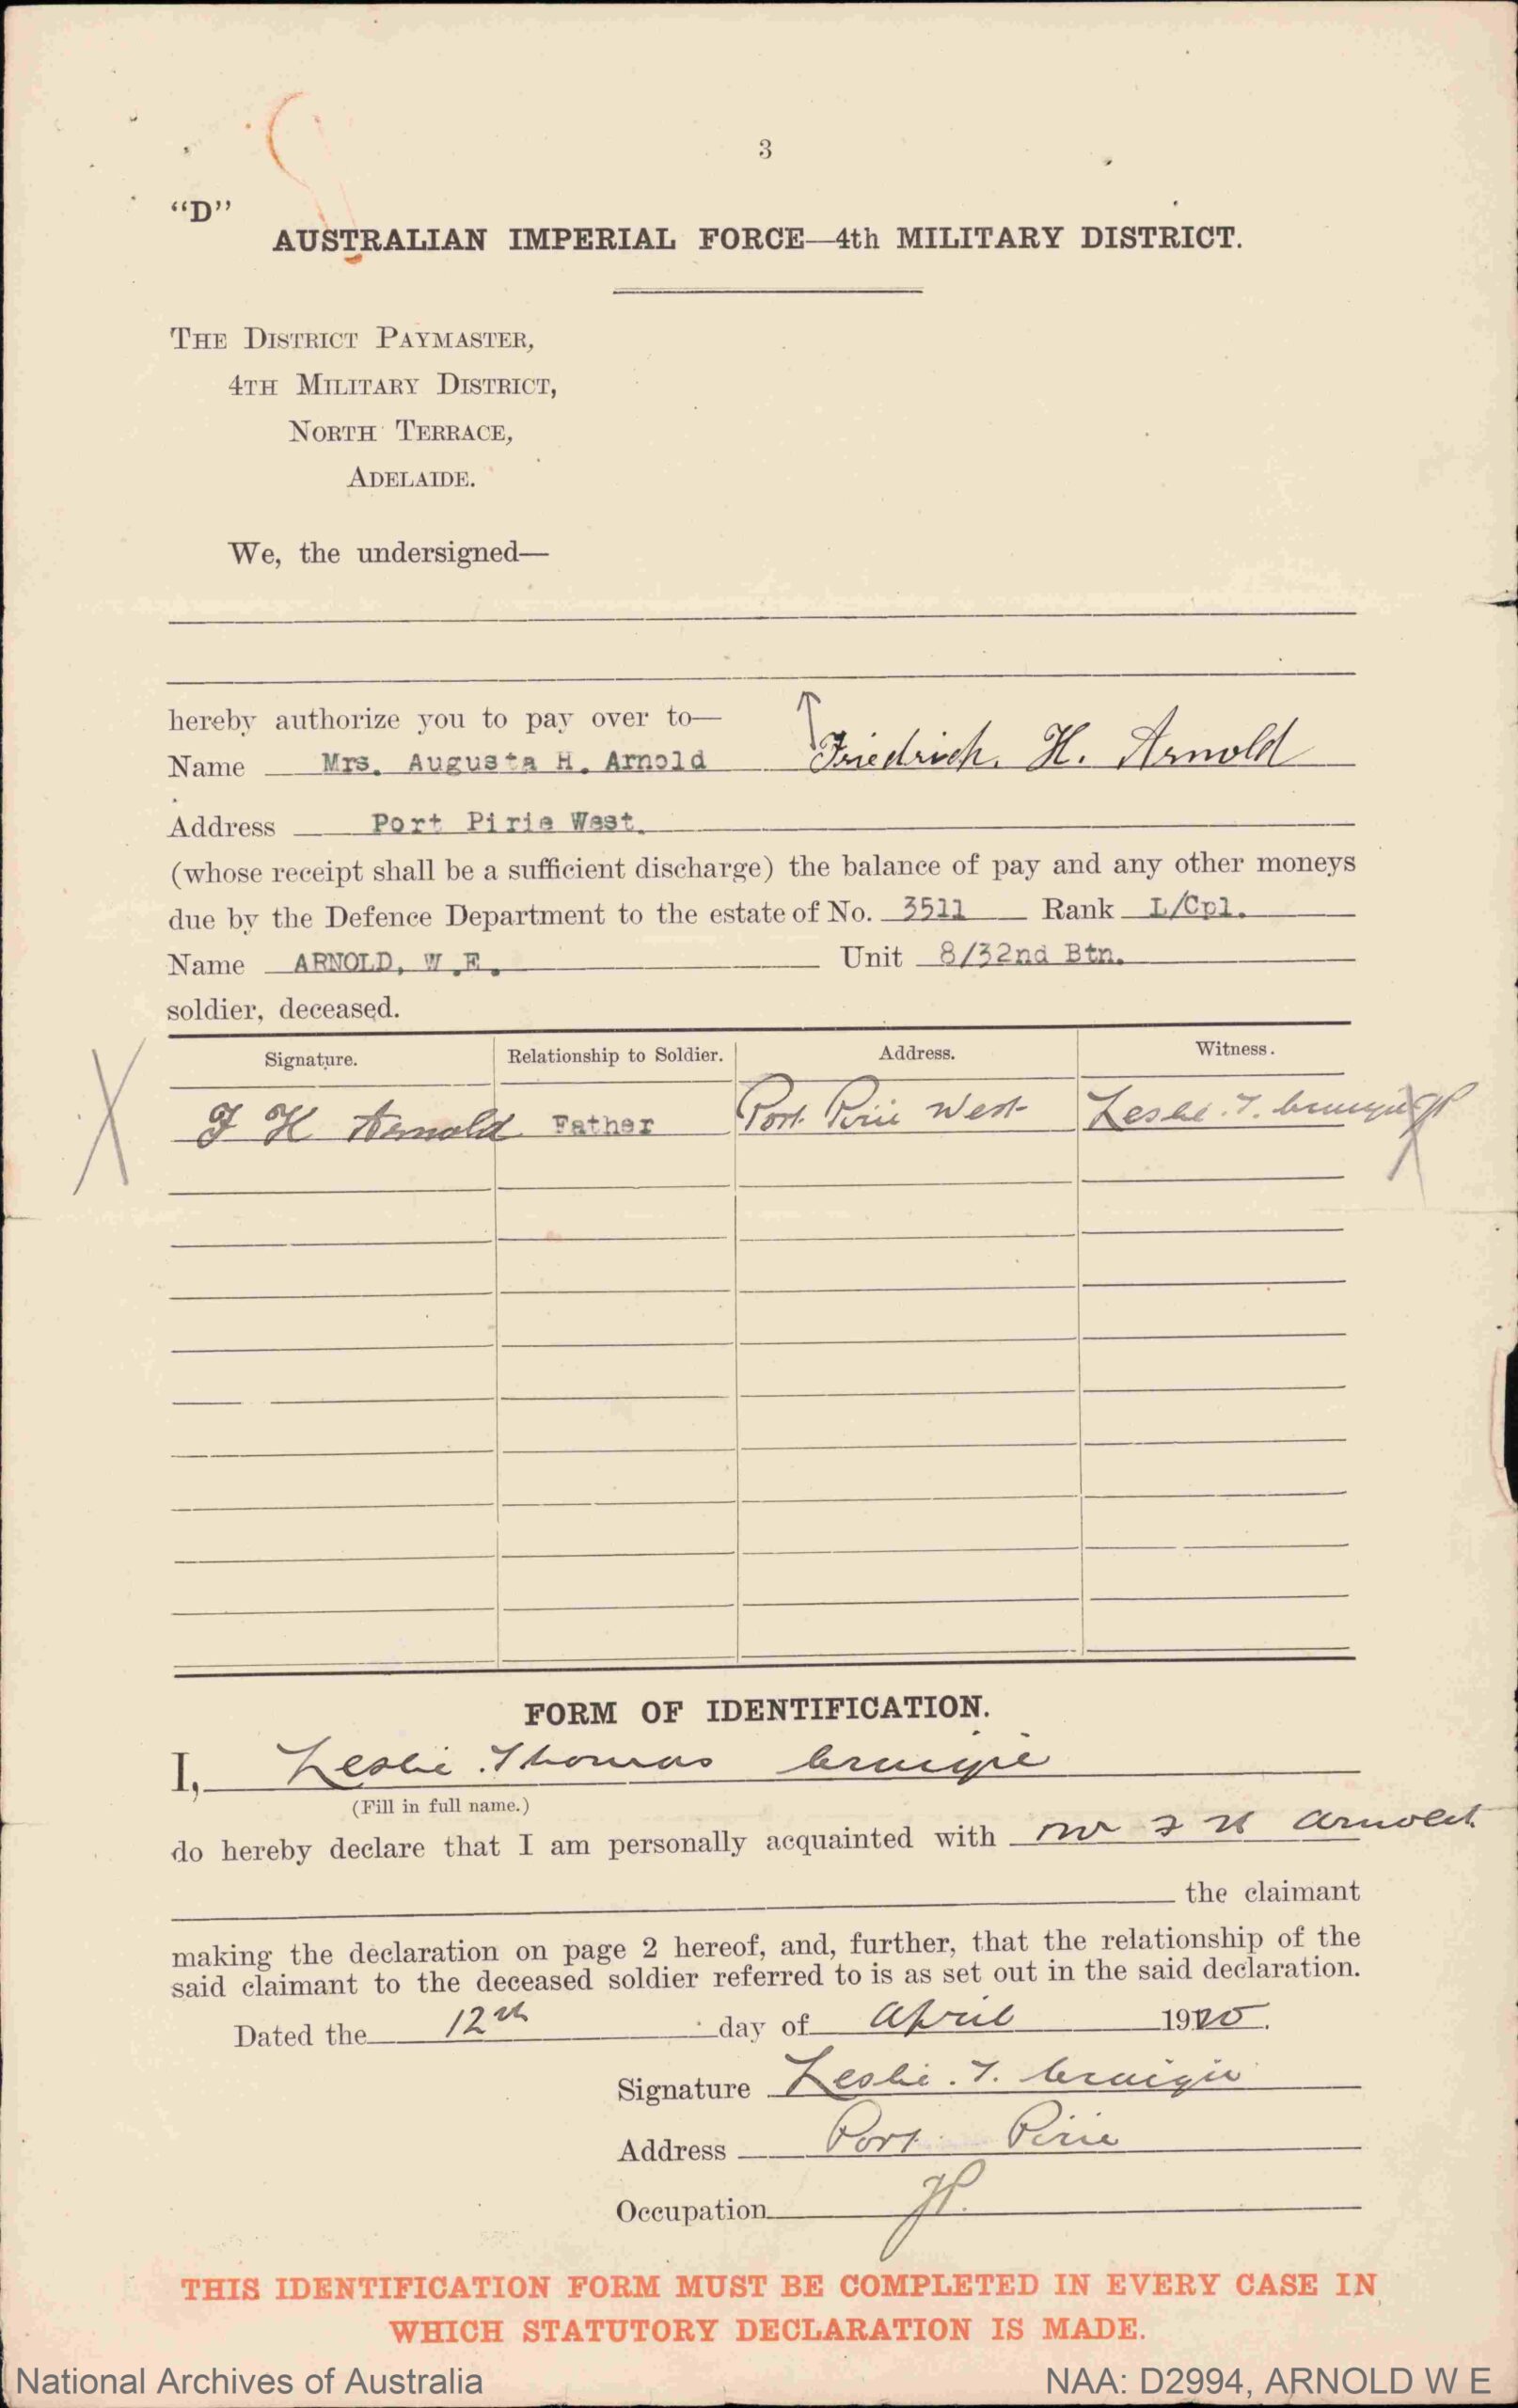 3
“D”
AUSTRALIAN IMPERIAL FORCE—4th MILITARY DISTRICT.
THE DISTRICT PAYMASTER,
4TH MILITARY DISTRICT,
NORTH TERRACE,
ADELAIDE.
We, the undersigned—
hereby authorize you to pay over to—
Name Mrs. Augusta H. Arnold Friedrich. H. Arnold
Address Port Pirie West.
(whose receipt shall be a sufficient discharge) the balance of pay and any other moneys
due by the Defence Department to the estate of No. 3511 Rank L/Cpl.
Name ARNOLD, W.E. Unit 8/32nd Btn.
soldier, deceased.
Signature. Relationship to Soldier. Address. Witness.
F H Arnold Father Port Pirie West Leslie. T. Craigie JP
FORM OF IDENTIFICATION.
I, Leslie Thomas Craigie
(Fill in full name.)
do hereby declare that I am personally acquainted with Mr F H Arnold
the claimant
making the declaration on page 2 hereof, and, further, that the relationship of the
said claimant to the deceased soldier referred to is as set out in the said declaration.
Dated the 12th day of April 1920.
Signature Leslie. T. Craigie
Address Port Pirie
Occupation JP.
THIS IDENTIFICATION FORM MUST BE COMPLETED IN EVERY CASE IN
WHICH STATUTORY DECLARATION IS MADE.
National Archives of Australia NAA: D2994, ARNOLD W E